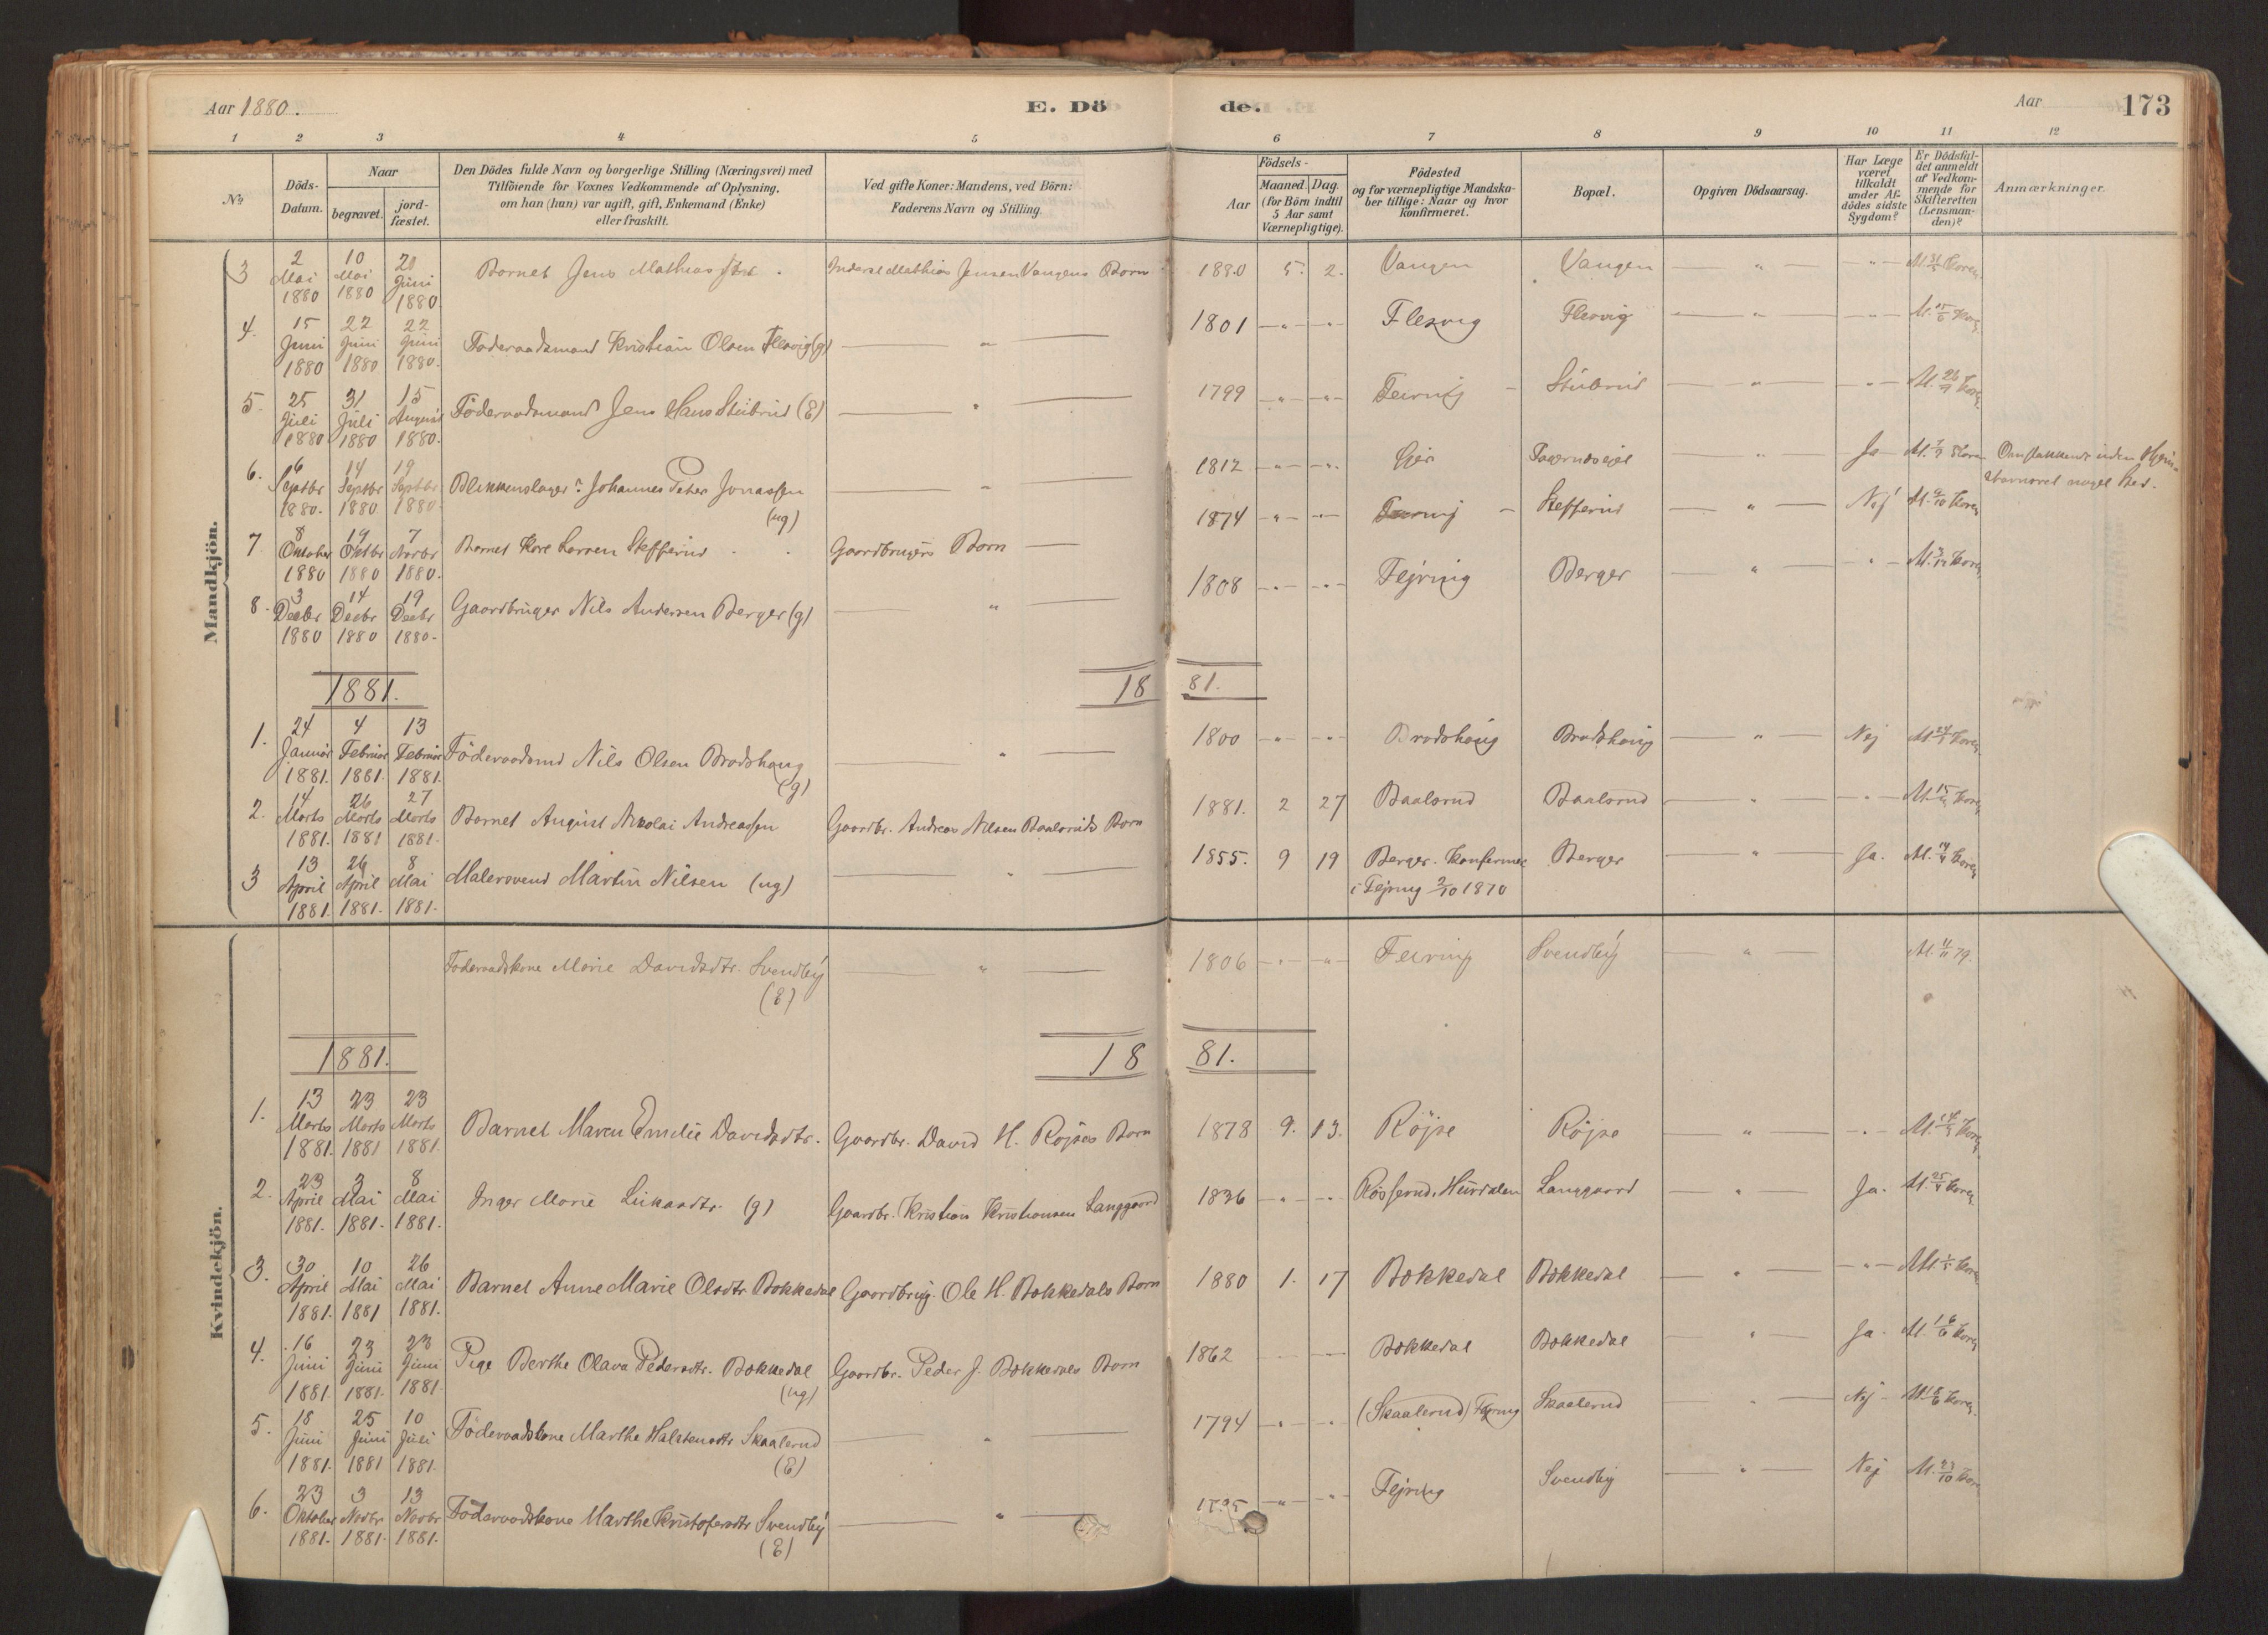 Aar 1880.
E. Dö
de.
Aar
173
1 2 3 4 5 6 7 8 9 10 11 12
No
Döds-
Datum.
Naar
begravet.
jord-
fæstet.
Den Dödes fulde Navn og borgerlige Stilling (Næringsvei) med
Tilföiende for Voxnes Vedkommende af Oplysning,
om han (hun) var ugift, gift, Enkemand (Enke)
eller fraskilt.
Ved gifte Koner: Mandens, ved Börn:
Faderens Navn og Stilling.
Födsels-
Aar
Maaned. Dag.
(for Börn indtil
5 Aar samt
Værnepligtige).
Födested
og for værnepligtige Mandska-
ber tillige: Naar og hvor
konfirmeret.
Bopæl.
Opgiven Dödsaarsag.
Har Læge
været
tilkaldt
under Af-
dödes sidste
Sygdom?
Er Dödsfal-
det anmeldt
af Vedkom-
mende for
Skifteretten
(Lensman-
den)?
Anmærkninger.
Mandkjön.
3 2 Mai 1880 10 Mai 1880 20 Juni 1880. Barnet Jens Mathias Inderst Mathias Jensen Vangens Barn 1880 5. 2. Vangen Vangen
4. 15 Juni 1880 22 Juni 1880 22 Juni 1880. Föderaadsmand Kristian Olsen Flesvig (g) 1801 Flesvig Flesvig
5. 25 Juli 1880 31 Juli 1880 15 August 1880. Föderaadsmand Jens Hans Stubrud (E) 1799 Feiring Stubrud
6. 6 Septbr 1880. 14 Septbr 1880 19 Septbr 1880 Blikkenslager Johannes Peter Jonassen (ug) 1812 Ja
Omflakkende uden Hjem-
7. 8 Oktober 1880 19 Oktbr 1880 7 Novbr 1880. Barnet Kare Larsen Stefferud Gaardbrugers Barn 1874 Feiring Stefferud Nej
8. 3 Decbr 1880 14 Decbr 1880 19 Decbr 1880. Gaardbruger Nils Andersen Berger (g) 1808 Fejring Berger
1881. 18 81.
1. 24 Januar 1881. 4 Februar 1881 13 Februar 1881. Föderaadsmd Nils Olsen Brodshaug (g) 1800 Brodshaug Brodshaug Nej
2. 14 Marts 1881. 26 Marts 1881 27 Marts 1881. Barnet August Nikolai Andreassen Gaardbr. Andreas Nilsen Baalsruds Barn 1881. 2 27 Baalsrud Baalsrud
3 13 April 1881. 26 April 1881. 8 Mai 1881. Malersvend Martin Nilsen (ug) 1855. 9 19 Berger. Konfirmer
i Fejring 2/10 1870 Berger Ja.
Kvindekjön.
Föderaadskone Marie Davidsdtr. Svendby (E) 1806 Feiring Svendby
1881. 18 81.
1. 13 Marts 1881. 23 Marts 1881 23 Marts 1881. Barnet Maren Emilie Davidsdtr. Gaardbr. David H. Röjses Barn 1878 9. 13. Röjse Röjse
2. 23 April 1881. 3 Mai 1881. 8 Mai 1881. Inger Marie Lukasdtr. (g) Gaardbr. Kristian Kristiansen Langgaard 1836 Hurdalen Langgaard Ja.
3. 30 April 1881. 10 Mai 1881 26 Mai 1881. Barnet Anne Marie Olsdtr Bakkedal Gaardbrug. Ole H. Bakkedals Barn 1880 1. 17 Bakkedal Bakkedal
4. 16 Juni 1881 23 Juni 1881. 23 Juni 1881. Pige Berthe Olava Pedersdtr. Bakkedal (ug) Gaardbr. Peder J. Bakkedals Barn 1862 Bakkedal Bakkedal Ja.
5. 18 Juni 1881. 25 Juni 1881 10 Juli 1881. Föderaadskone Marthe Halstensdtr Skaalerud (E) 1794 (Skaalerud) Fejring Skaalerud Nej
6. 23 Oktober 1881. 3 Novbr 1881. 13 Novbr 1881. Föderaadskone Marthe Kristofersdtr Svendby (E) Fejring Svendby Nej